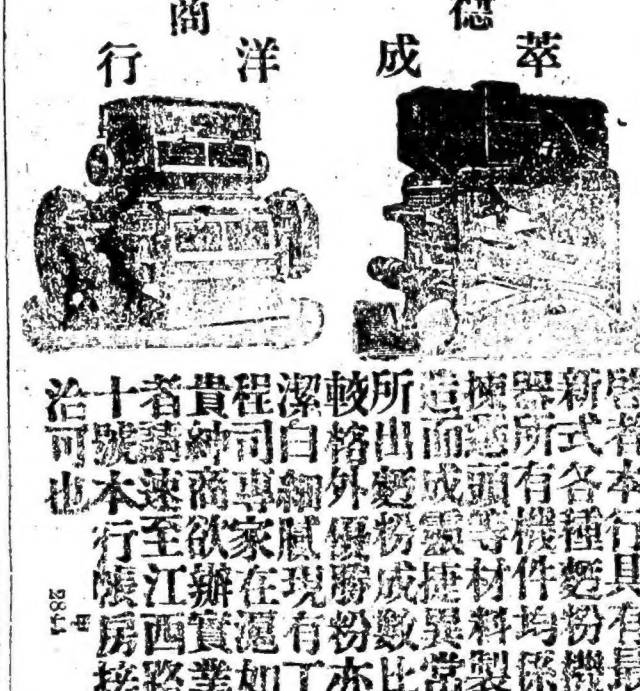 德
商
萃成
洋行
啓者本行具有最
新式各種麵粉機
器所有機件均係
揀選頭等材料製
造而成靈捷異常
所出麵粉成數比
較格外優勝粉亦
潔白細膩現有工
程司專家在滬如
貴紳商欲辦實業
者請速至江西路
十號本行帳房接
洽可也
2844